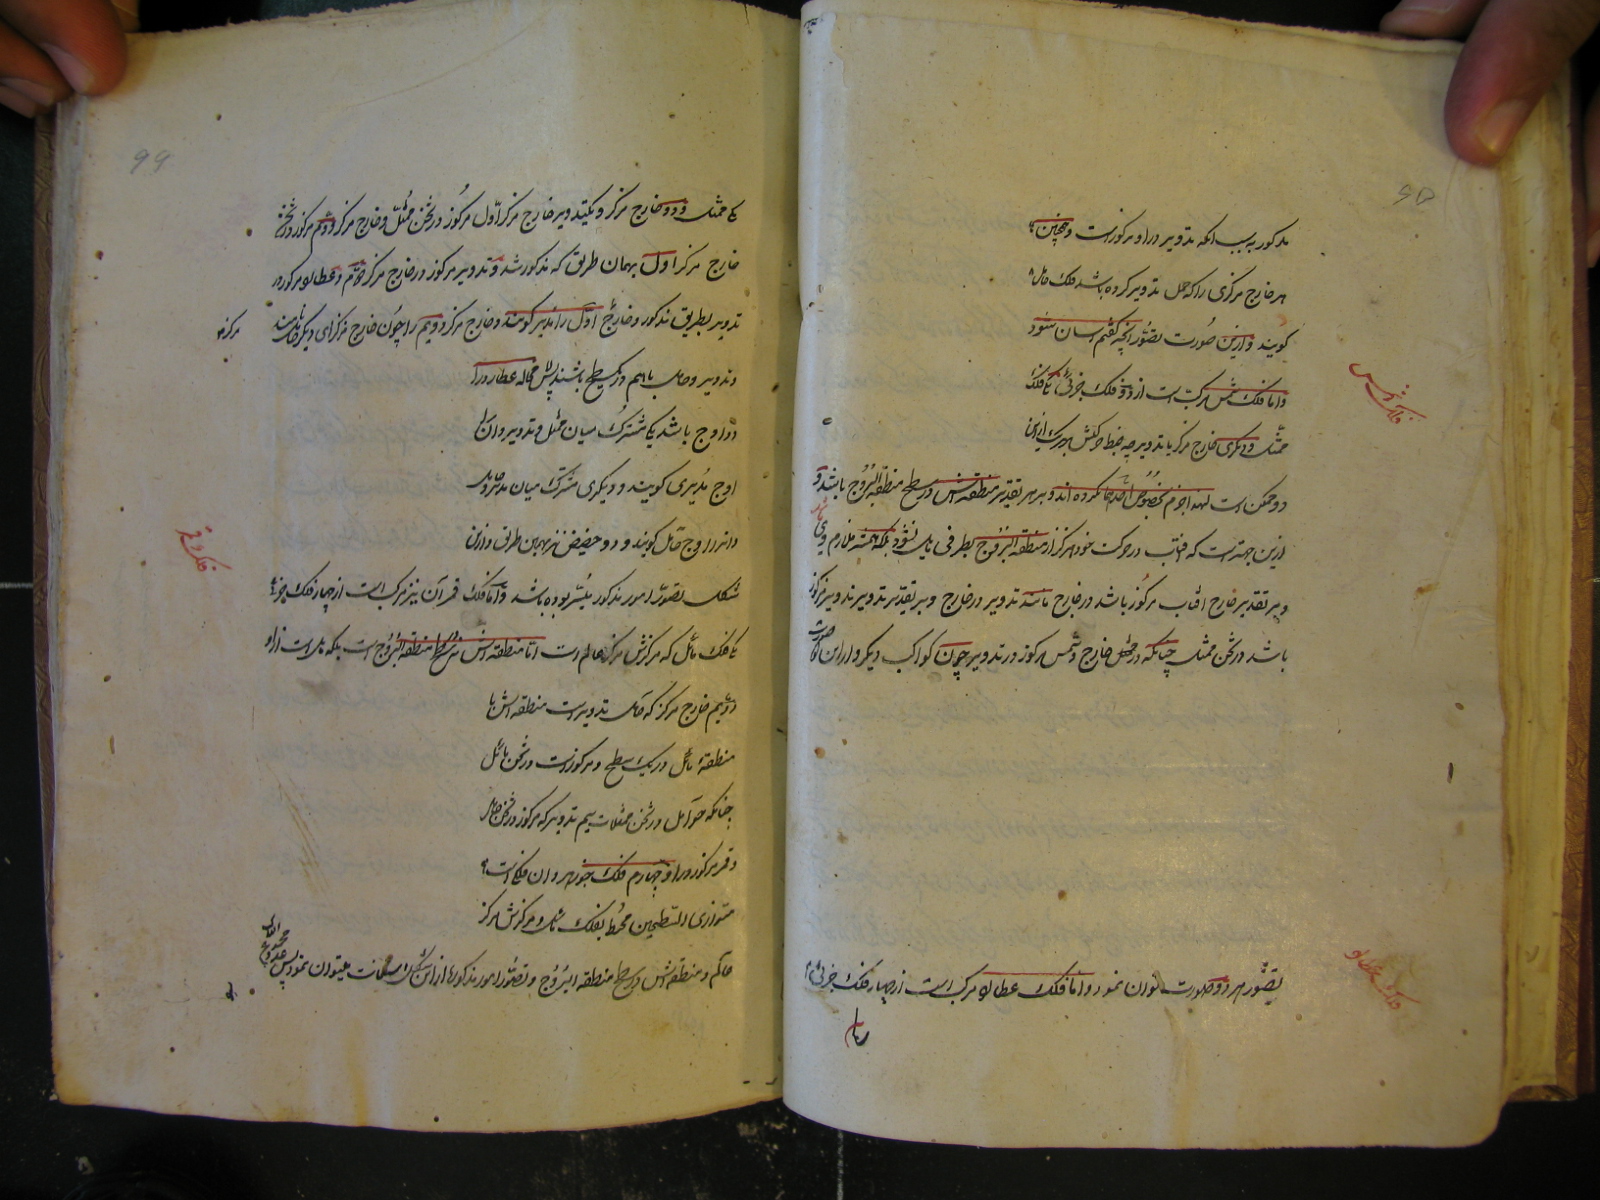 مذکور به سبب آنکه تدویر در او مرکوزست و همچنین
هر خارج مرکزی را که محل تدویر کرده باشد فلک حامل
گویند و ازین صورت تصور آنچه گفتیم آسان شود
و اما فلک شمس مرکب است از دو فلک جزئی یکی فلک
ممثل و دیگری خارج مرکز یا تدویر چه ضبط حرکتش بهر یک ازین
دو ممکن است لهذا جزم بخصوص احدهما نکرده اند و بر هر تقدیر منطقه اش در سطح منطقة البروج باشد و
ازین جهت است که آفتاب در حرکت خود هرگز از منطقة البروج بطرفی مایل نشود بلکه همیشه ملازم وی
باشد
و بر تقدیر خارج آفتاب مرکوز باشد در خارج مانند تدویر در خارج و بر تقدیر تدویر تدویر مرکوز
باشد در ثخن ممثل چنانکه در ممثل خارج و شمس مرکوز در تدویر چون کواکب دیگر و ازین صورت
تصور هر دو صورت توان نمود و اما فلک عطارد مرکب است از چهار فلک جزئی
فلک شمس
فلک عطارد
یکی ممثل و دو خارج مرکز و یک تدویر خارج مرکز اول مرکوز در ثخن ممثل و خارج مرکز دویم مرکوز در ثخن
خارج مرکز اول بهمان طریق که مذکور شد و تدویر مرکوز در خارج مرکز دویم و عطارد مرکوز در
تدویر بطریق مذکور و خارج اول را مدیر گویند و خارج مرکز دویم را چون خارج مرکزهای دیگر حامل نامند
مرکز
و تدویر و حامل با هم در یک سطح باشند پس لا محاله عطارد را
دو اوج باشد یکی مشترک میان ممثل و مدیر و آن را
اوج مدیری گویند و دیگری مشترک میان مدیر و حامل
و آنرا اوج حامل گویند و دو حضیض نیز بهمین طریق و ازین
شکل تصور امور مذکور میسر بوده باشد و اما فلک قمر آن نیز مرکب است از چهار فلک جزئی
یکی فلک مایل که مرکزش مرکز عالم است اما منطقه اش نه در سطح منطقة البروج است بلکه مایل است ازو
دویم خارج مرکز که حامل تدویر است منطقه اش با
منطقه مایل در یک سطح و مرکوزست در ثخن مایل
چنانکه حوامل در ثخن ممثلات سیم تدویر که مرکوز در ثخن حامل
و قمر مرکوز در او چهارم فلک جوزهر و آن فلکی است
متوازی السطحین محیط بفلک مایل و مرکزش مرکز
عالم و منطقه اش در سطح منطقة البروج و تصور امور مذکوره از این شکل میتوان نمود پس
فلک قمر